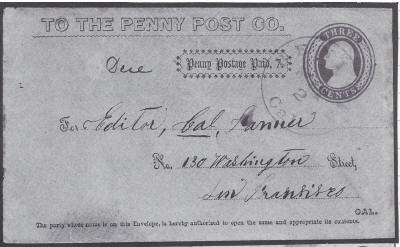 TO THE PENNY POST CO.
THREE
Penny Postage Paid, 7.
CENTS
For Editor, Cal. Banner
No. 130 Washington Street,
San Francisco
CAL.
The party whose name is on this Envelope, is hereby authorized to open the same and appropriate its contents.